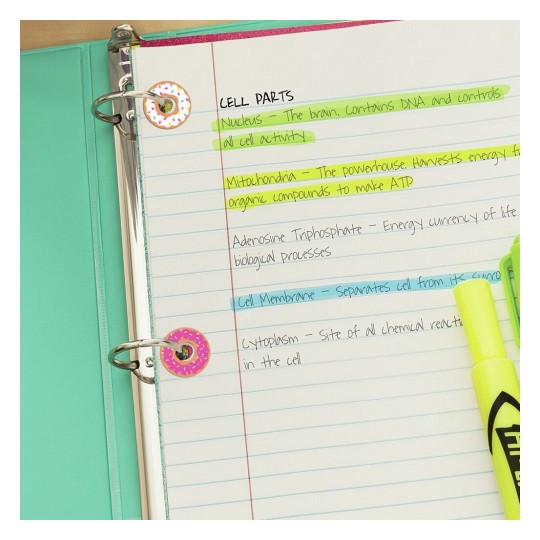 CELL PARTS
Nucleus – The brain. Contains DNA and controls
all cell activity
Mitochondria – The powerhouse. Harvests energy
organic compounds to make ATP
Adenosine Triphosphate – Energy currency of life
biological processes
Cell Membrane – Separates cell from its
Cytoplasm – Site of all chemical
in the cell